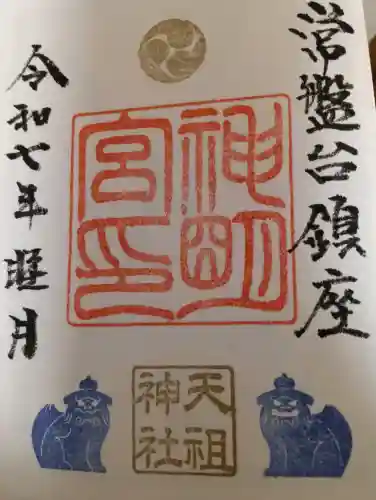 常盤台鎮座
神明
宮印
天祖
神社
令和七年睦月